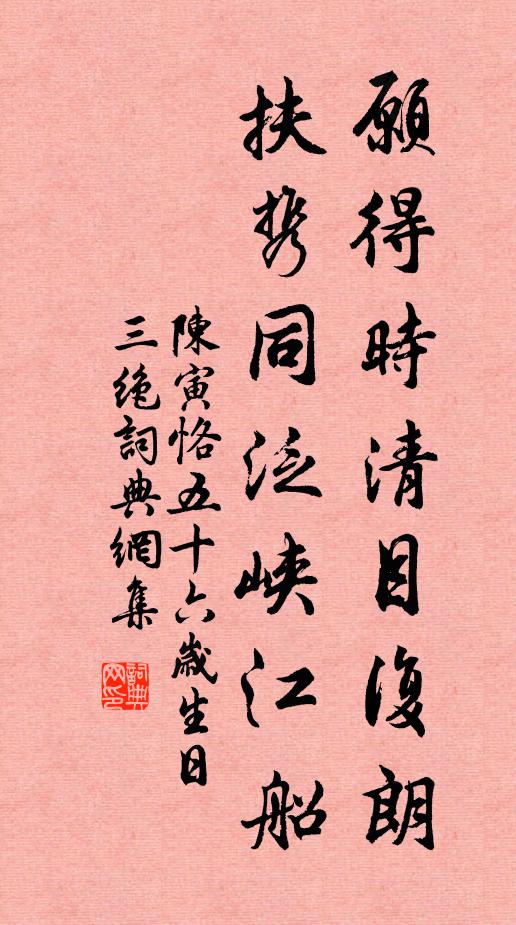 願得時清目復朗
扶携同泛峽江船
陳寅恪五十六歲生日
三絶詞典網集
詞典
网印